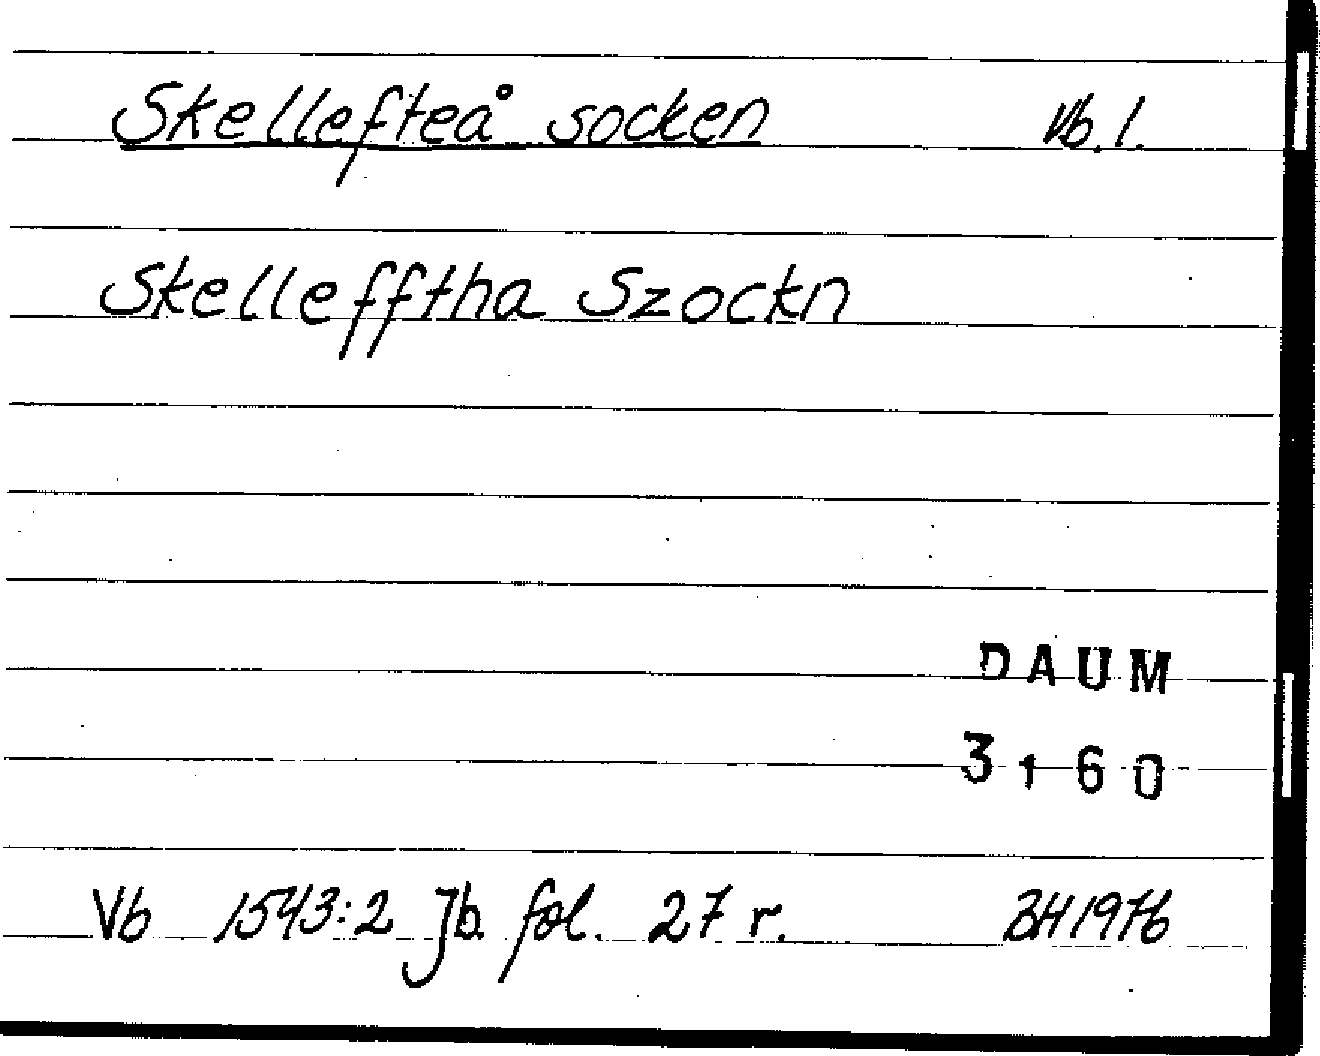 Skellefteå socken Vb. l.
Skellefftha Szockn
DAUM
3160
Vb 1543:2 Jb. fol. 27 r. BH 1976